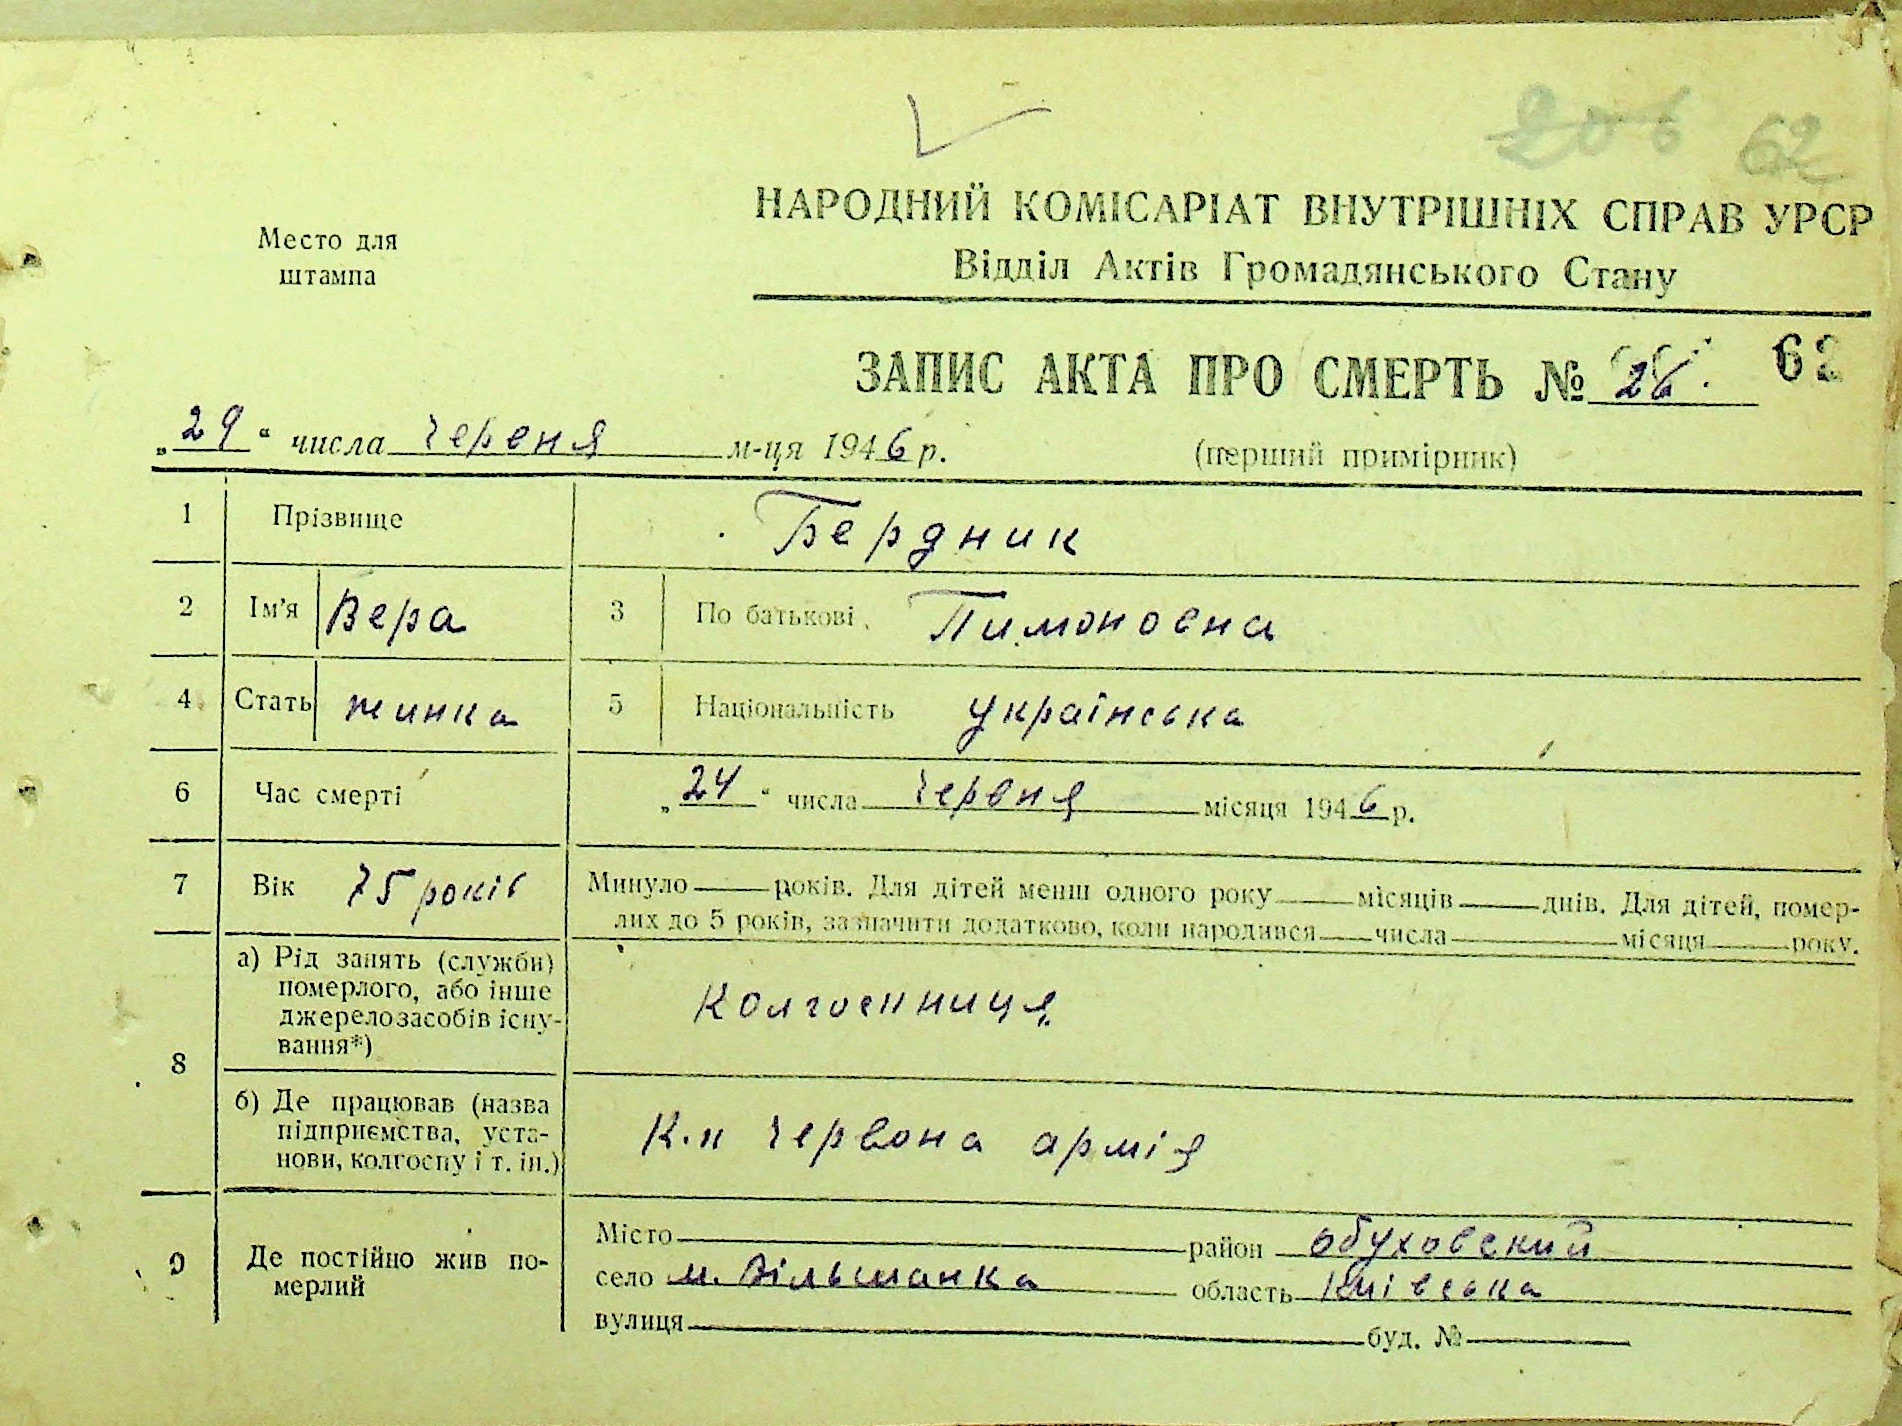 206 62
НАРОДНИЙ КОМІСАРІАТ ВНУТРІШНІХ СПРАВ УРСР
Место для
штампа
Відділ Актів Громадянського Стану
ЗАПИС АКТА ПРО СМЕРТЬ № 26. 62
„29“ числа червня м-ця 1946 р.
(перший примірник)
1 Прізвище Бердник
2 Ім'я Вера 3 По батькові Пимоновна
4 Стать жинка 5 Національність українська
6 Час смерті „24“ числа червня місяця 1946 р.
7 Вік 75 років Минуло років. Для дітей менш одного року місяців днів. Для дітей, помер-
лих до 5 років, зазначити додатково, коли народився числа місяця року.
8 а) Рід занять (служби)
померлого, або інше
джерело засобів існу-
вання*)
Колгоспниця
б) Де працював (назва
підприємства, уста-
нови, колгоспу і т. ін.)
К-п червона армія
9 Де постійно жив по-
мерлий
Місто район обуховский
село м. Вільшанка область Київська
вулиця буд. №